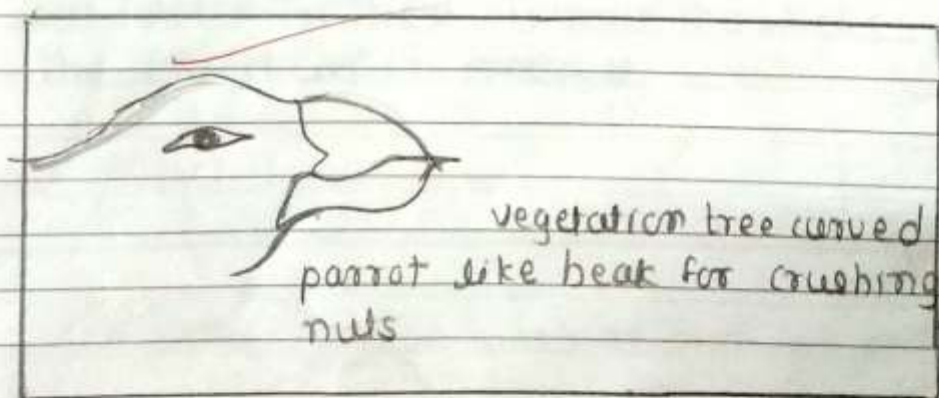 vegetation tree curved
parrot like beak for crushing
nuts